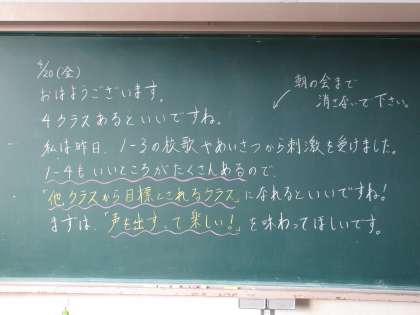 4/20(金)
おはようございます。
朝の会まで
消さないで下さい。
4クラスあるといいですね。
私は昨日、1-3の校歌やあいさつから刺激を受けました。
1-4もいいところがたくさんあるので、
「他クラスから目標とされるクラス」になれるといいですね!
まずは、「声を出すって楽しい!」を味わってほしいです。